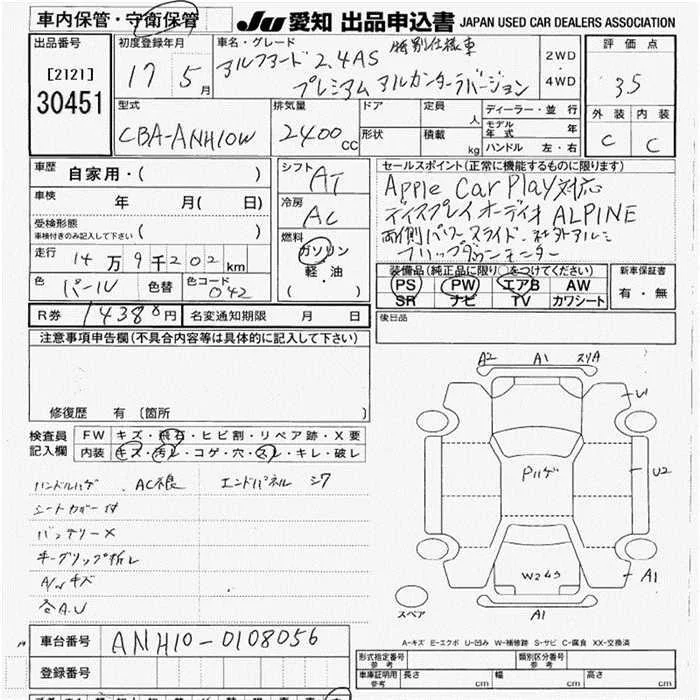 車内保管・守衛保管
JU 愛知 出品申込書 JAPAN USED CAR DEALERS ASSOCIATION
出品番号
[2121]
30451
初度登録年月
17 5月
車名・グレード
アルファード 2.4AS 特別仕様車
プレミアム アルカンターラバージョン
2WD
・
4WD
評価点
3.5
外装 内装
C C
型式
CBA-ANH10W
排気量
2400cc
ドア
形状
定員 人
積載 kg
ディーラー・並行
モデル年式 年
ハンドル 左・右
車歴
自家用・( )
車検
年 月( 日)
受検形態
車検付きのみ記入して下さい ( )
走行
14万9千202km
色 パール 色替 色コード 042
シフト AT
冷房 AC
燃料
ガソリン
・
軽・油
( )
セールスポイント(正常に機能するものに限ります)
Apple Car Play対応
ディスプレイオーディオ ALPINE
両側パワースライド・社外アルミ
フリップダウンモニター
装備品(純正品に限り○をつけてください)
PS PW エアB AW
SR ナビ TV カワシート
新車保証書
有・無
R券 14380円 名変通知期限 月 日
後日品
注意事項申告欄(不具合内容等は具体的に記入して下さい)
修復歴 有 〔箇所 〕
検査員記入欄
FW キズ・飛石・ヒビ割・リペア跡・X要
内装 キズ・汚レ・コゲ・穴・スレ・キレ・破レ
ハンドルハゲ AC不良 エンドパネル シワ
シートカバー付
バッテリーX
キーグリップ折レ
A/Wキズ
各A.U
A2 A1 スリA
U1
Pハゲ
U2
W2 4 5
A1
A1
スペア
A-キズ E-エクボ U-凹み W-補修跡 S-サビ C-腐食 XX-交換済
車台番号 ANH10-0108056
登録番号
形式指定番号 参考
類別区分番号 参考
車庫証明用 参考 長さ cm 幅 cm 高さ cm